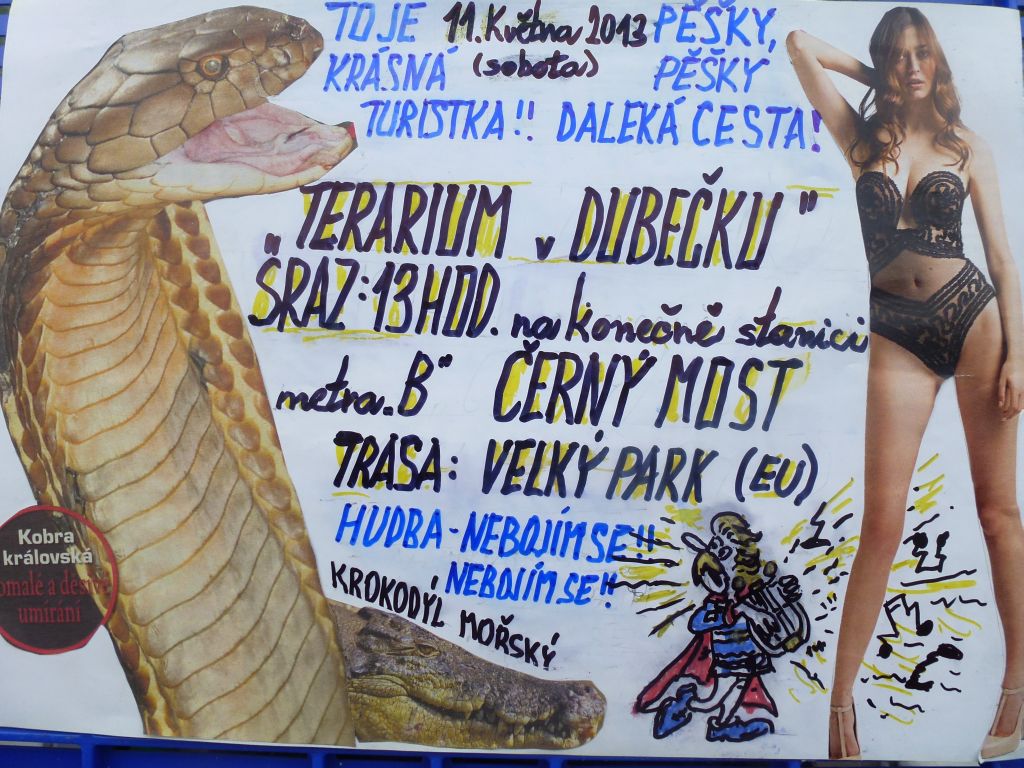 TO JE 11. Května 2013 PĚŠKY,
KRÁSNÁ (sobota) PĚŠKY
TURISTKA!! DALEKÁ CESTA!
"TERARIUM v DUBEČKU"
SRAZ: 13 HOD. na konečné stanici
metra „B" ČERNÝ MOST
TRASA: VELKÝ PARK (EU)
HUDBA - NEBOJÍM SE!!
NEBOJÍM SE!!
KROKODÝL MOŘSKÝ
Kobra
královská
omalé a děsivé
umírání